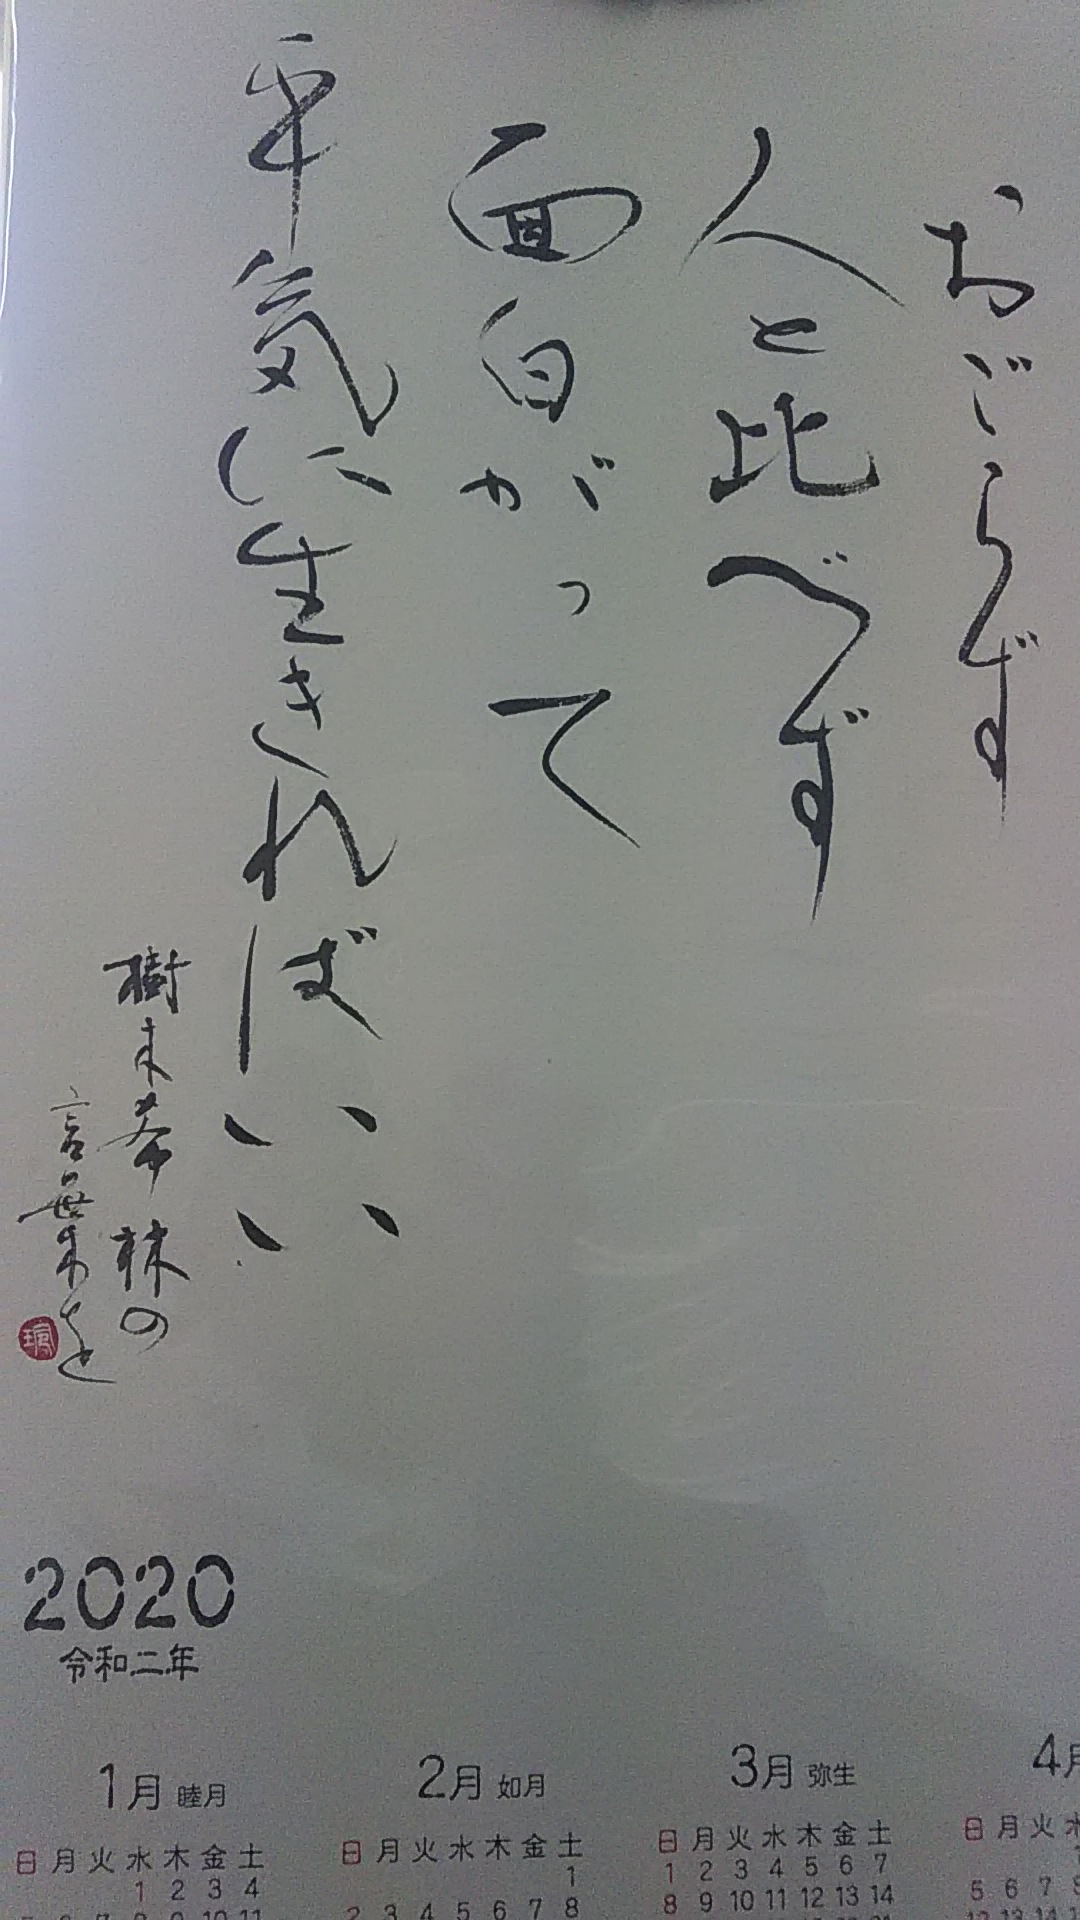 おごらず
人と比べず
面白がって
平気に生きればいい
樹木希林の
言葉を
2020
令和二年
1月 睦月
日 月 火 水 木 金 土
1 2 3 4
2月 如月
日 月 火 水 木 金 土
1
2 3 4 5 6 7 8
3月 弥生
日 月 火 水 木 金 土
1 2 3 4 5 6 7
8 9 10 11 12 13 14
4月
日 月 火 水
5 6 7 8